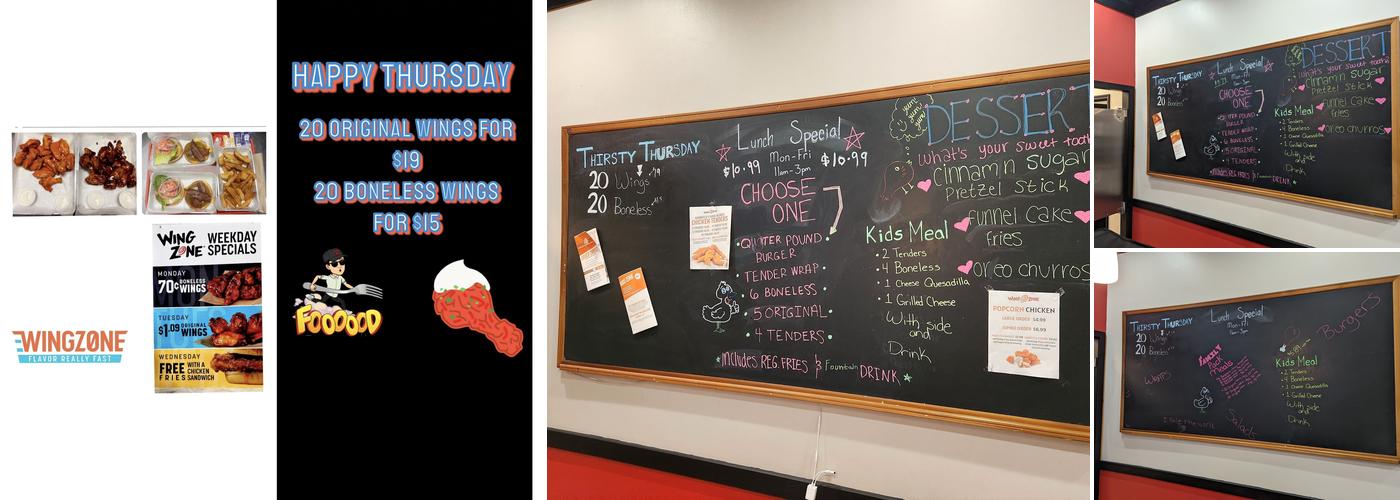 WING ZONE
WEEKDAY SPECIALS
MONDAY
70¢ BONELESS WINGS
TUESDAY
$1.09 ORIGINAL WINGS
WEDNESDAY
FREE FRIES WITH A CHICKEN SANDWICH
WINGZONE
FLAVOR REALLY FAST
HAPPY THURSDAY
20 ORIGINAL WINGS FOR
$19
20 BONELESS WINGS
FOR $15
FOOOOOD
THIRSTY THURSDAY
20 Wings
20 Boneless
Lunch Special
$10.99 Mon-Fri $10.99
11am-3pm
CHOOSE
ONE
BURGER
TENDER WRAP
6 BONELESS
5 ORIGINAL
4 TENDERS
includes REG. FRIES & Fountain DRINK
CHICKEN TENDERS
yum! yum! yum!
DESSERT
what's your sweet tooth
cinnamn sugar
Pretzel Stick
funnel Cake
fries
oreo churros
Kids Meal
2 Tenders
4 Boneless
1 Cheese Quesadilla
1 Grilled Cheese
With side
and
Drink
WING ZONE
POPCORN CHICKEN
LARGE ORDER $4.99
JUMBO ORDER $6.99
THIRSTY THURSDAY
20 Wings
20 Boneless
Lunch Special
Mon-Fri
11am-3pm
CHOOSE
ONE
BURGER
TENDER WRAP
6 BONELESS
5 ORIGINAL
4 TENDERS
includes REG. FRIES & Fountain DRINK
DESSERT
what's your sweet tooth
cinnamn sugar
Pretzel Stick
funnel Cake
fries
oreo churros
Kids Meal
2 Tenders
4 Boneless
1 Cheese Quesadilla
1 Grilled Cheese
With side
and
Drink
THIRSTY THURSDAY
20 Wings
20 Boneless
Lunch Special
Mon-Fri
11am-3pm
Burgers
Wraps
FAMILY
Pack
Meals
Salads
Kids Meal
2 Tenders
4 Boneless
1 Cheese Quesadilla
1 Grilled Cheese
With side
and
Drink